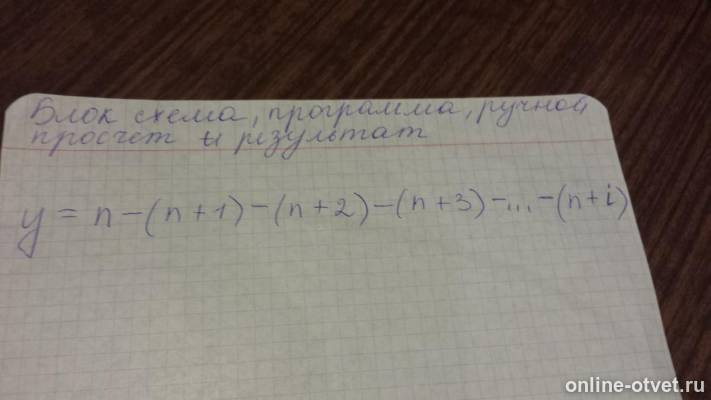 Блок схема, программа, ручной
просчет и результат
y = n - (n + 1) - (n + 2) - (n + 3) - ... - (n + i)
online-otvet.ru